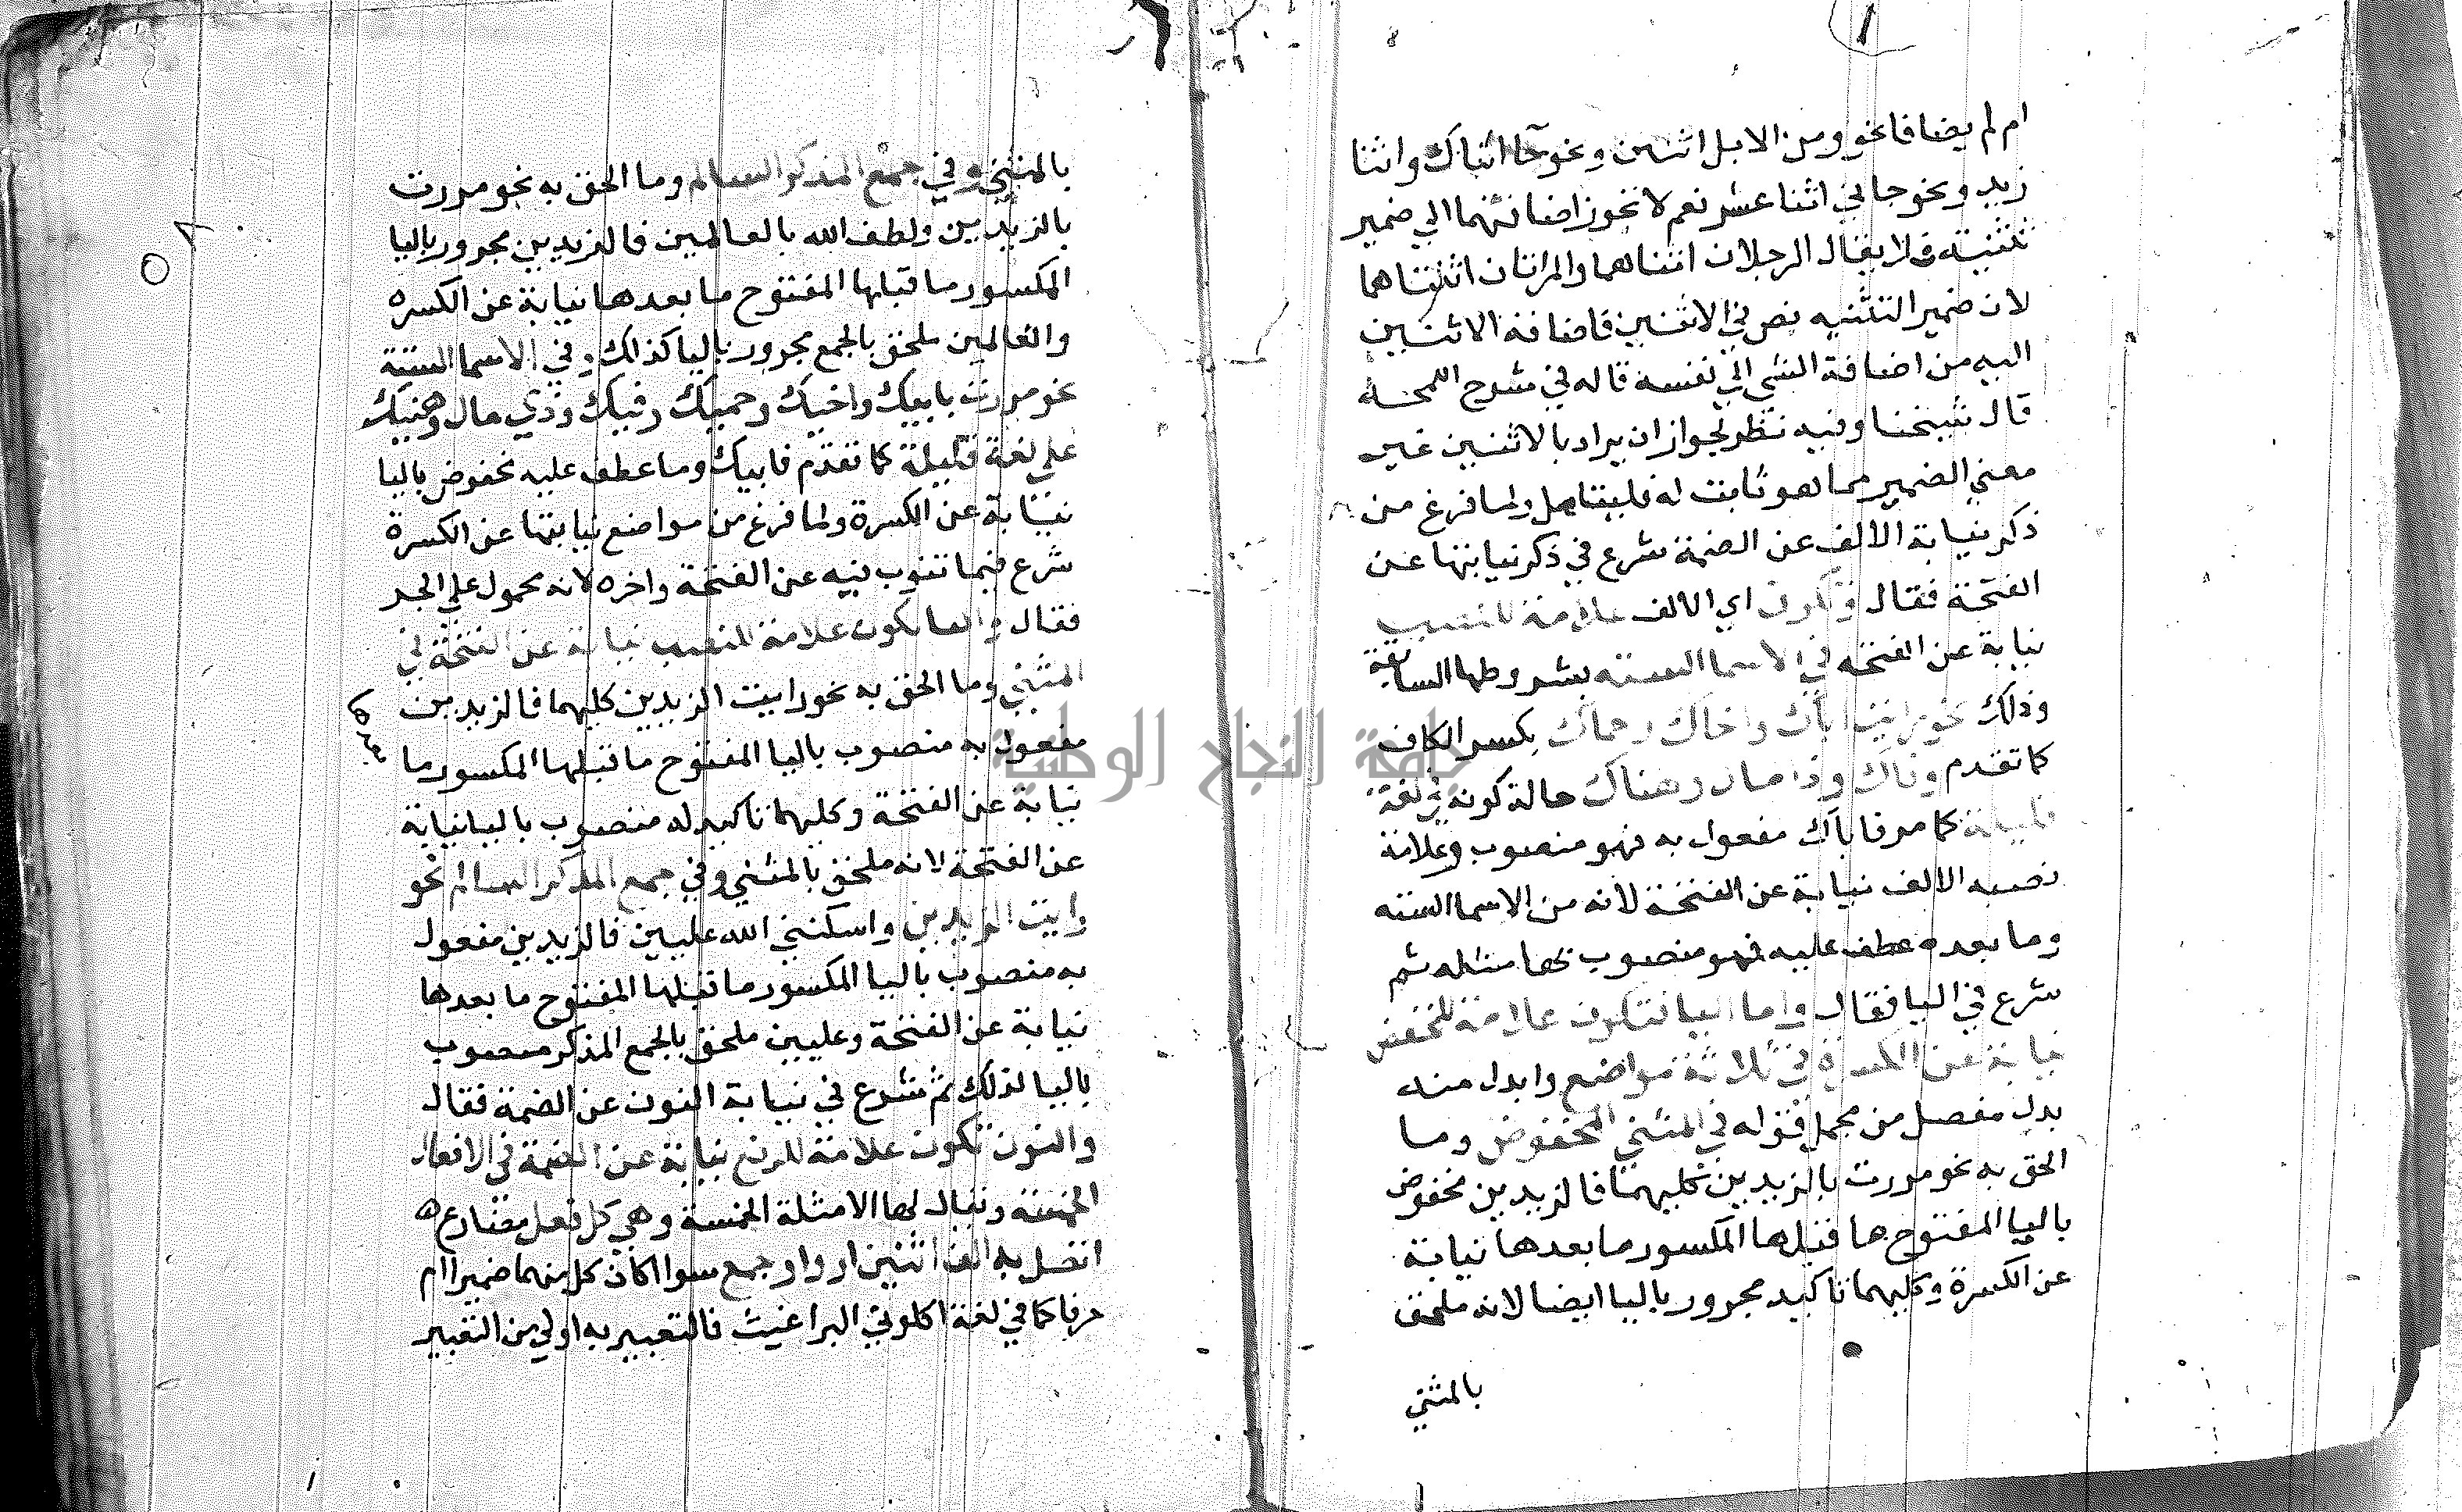 ام لم يضافا نحو ومن الابل اثنين ونحو جا اثناك واثنا
زيد ونحو جاني اثنا عشر نعم لا تجوز اضافتهما الي ضمير
تثنية فلا يقال الرجلان اثناهما والمراتان اثنتاهما
لان ضمير التثنيه نص في الاثنين فاضافة الاثنين
اليه من اضافة الشي الي نفسه قاله في شرح اللمحة
قال شيخنا وفيه نظر لجواز ان يراد بالاثنين غير
معني الضمير مما هو ثابت له فليتامل ولما فرغ من
ذكر نيابة الالف عن الضمة شرع في ذكر نيابتها عن
الفتحة فقال وتكون اي الالف علامة للنصب
نيابة عن الفتحه في الاسما الستة بشروطها السابقة
وذلك نحو رايت اباك واخاك وحماك بكسر الكاف
كما تقدم وفاك وذا مال وهناك حالة كونه في لغة
قليلة كما مر فاباك مفعول به فهو منصوب وعلامة
نصبه الالف نيابة عن الفتحة لانه من الاسما الستة
وما بعده عطف عليه فهو منصوب بها مثله ثم
شرع في اليا فقال واما اليا فتكون علامة للخفض
نيابة عن الكسرة في ثلاثة مواضع وابدل منه
بدل مفصل من مجمل قوله في المثني المخفوض وما
الحق به نحو مررت بالزيدين كليهما فالزيدين مخفوض
باليا المفتوح ما قبلها المكسور ما بعدها نيابة
عن الكسرة وكليهما تاكيد مجرور باليا ايضا لانه ملحق
بالمثني
بالمثني وفي جمع المذكر السالم وما الحق به نحو مررت
بالزيدين ولطف الله بالعالمين فالزيدين مجرور باليا
المكسور ما قبلها المفتوح ما بعدها نيابة عن الكسره
والعالمين ملحق بالجمع مجرور باليا كذلك وفي الاسما الستة
نحو مررت بابيك واخيك وحميك وفيك وذي مال وهنيك
علي لغة قليلة كما تقدم فابيك وما عطف عليه مخفوض باليا
نيابة عن الكسرة ولما فرغ من مواضع نيابتها عن الكسرة
شرع فيما تنوب فيه عن الفتحة واخره لانه محمول علي الجر
فقال واليا تكون علامة للنصب نيابة عن الفتحة في
المثني وما الحق به نحو رايت الزيدين كليهما فالزيدين
مفعول به منصوب باليا المفتوح ما قبلها المكسور ما
نيابة عن الفتحة وكليهما تاكيد له منصوب باليا نيابة
عن الفتحة لانه ملحق بالمثني وفي جمع المذكر السالم نحو
رايت الزيدين واسكنني الله عليين فالزيدين مفعول
به منصوب باليا المكسور ما قبلها المفتوح ما بعدها
نيابة عن الفتحة وعليين ملحق بالجمع المذكر منصوب
باليا لذلك ثم شرع في نيابة النون عن الضمة فقال
والنون تكون علامة للرفع نيابة عن الضمة في الافعال
الخمسة ويقال لها الامثلة الخمسة وهي كل فعل مضارع
اتصل به الف اثنين او واو جمع سوا كان كل منهما ضميرا ام
حرفا كما في لغة اكلوني البراغيث فالتعبير به اولي من التعبير
جامعة النجاح الوطنية